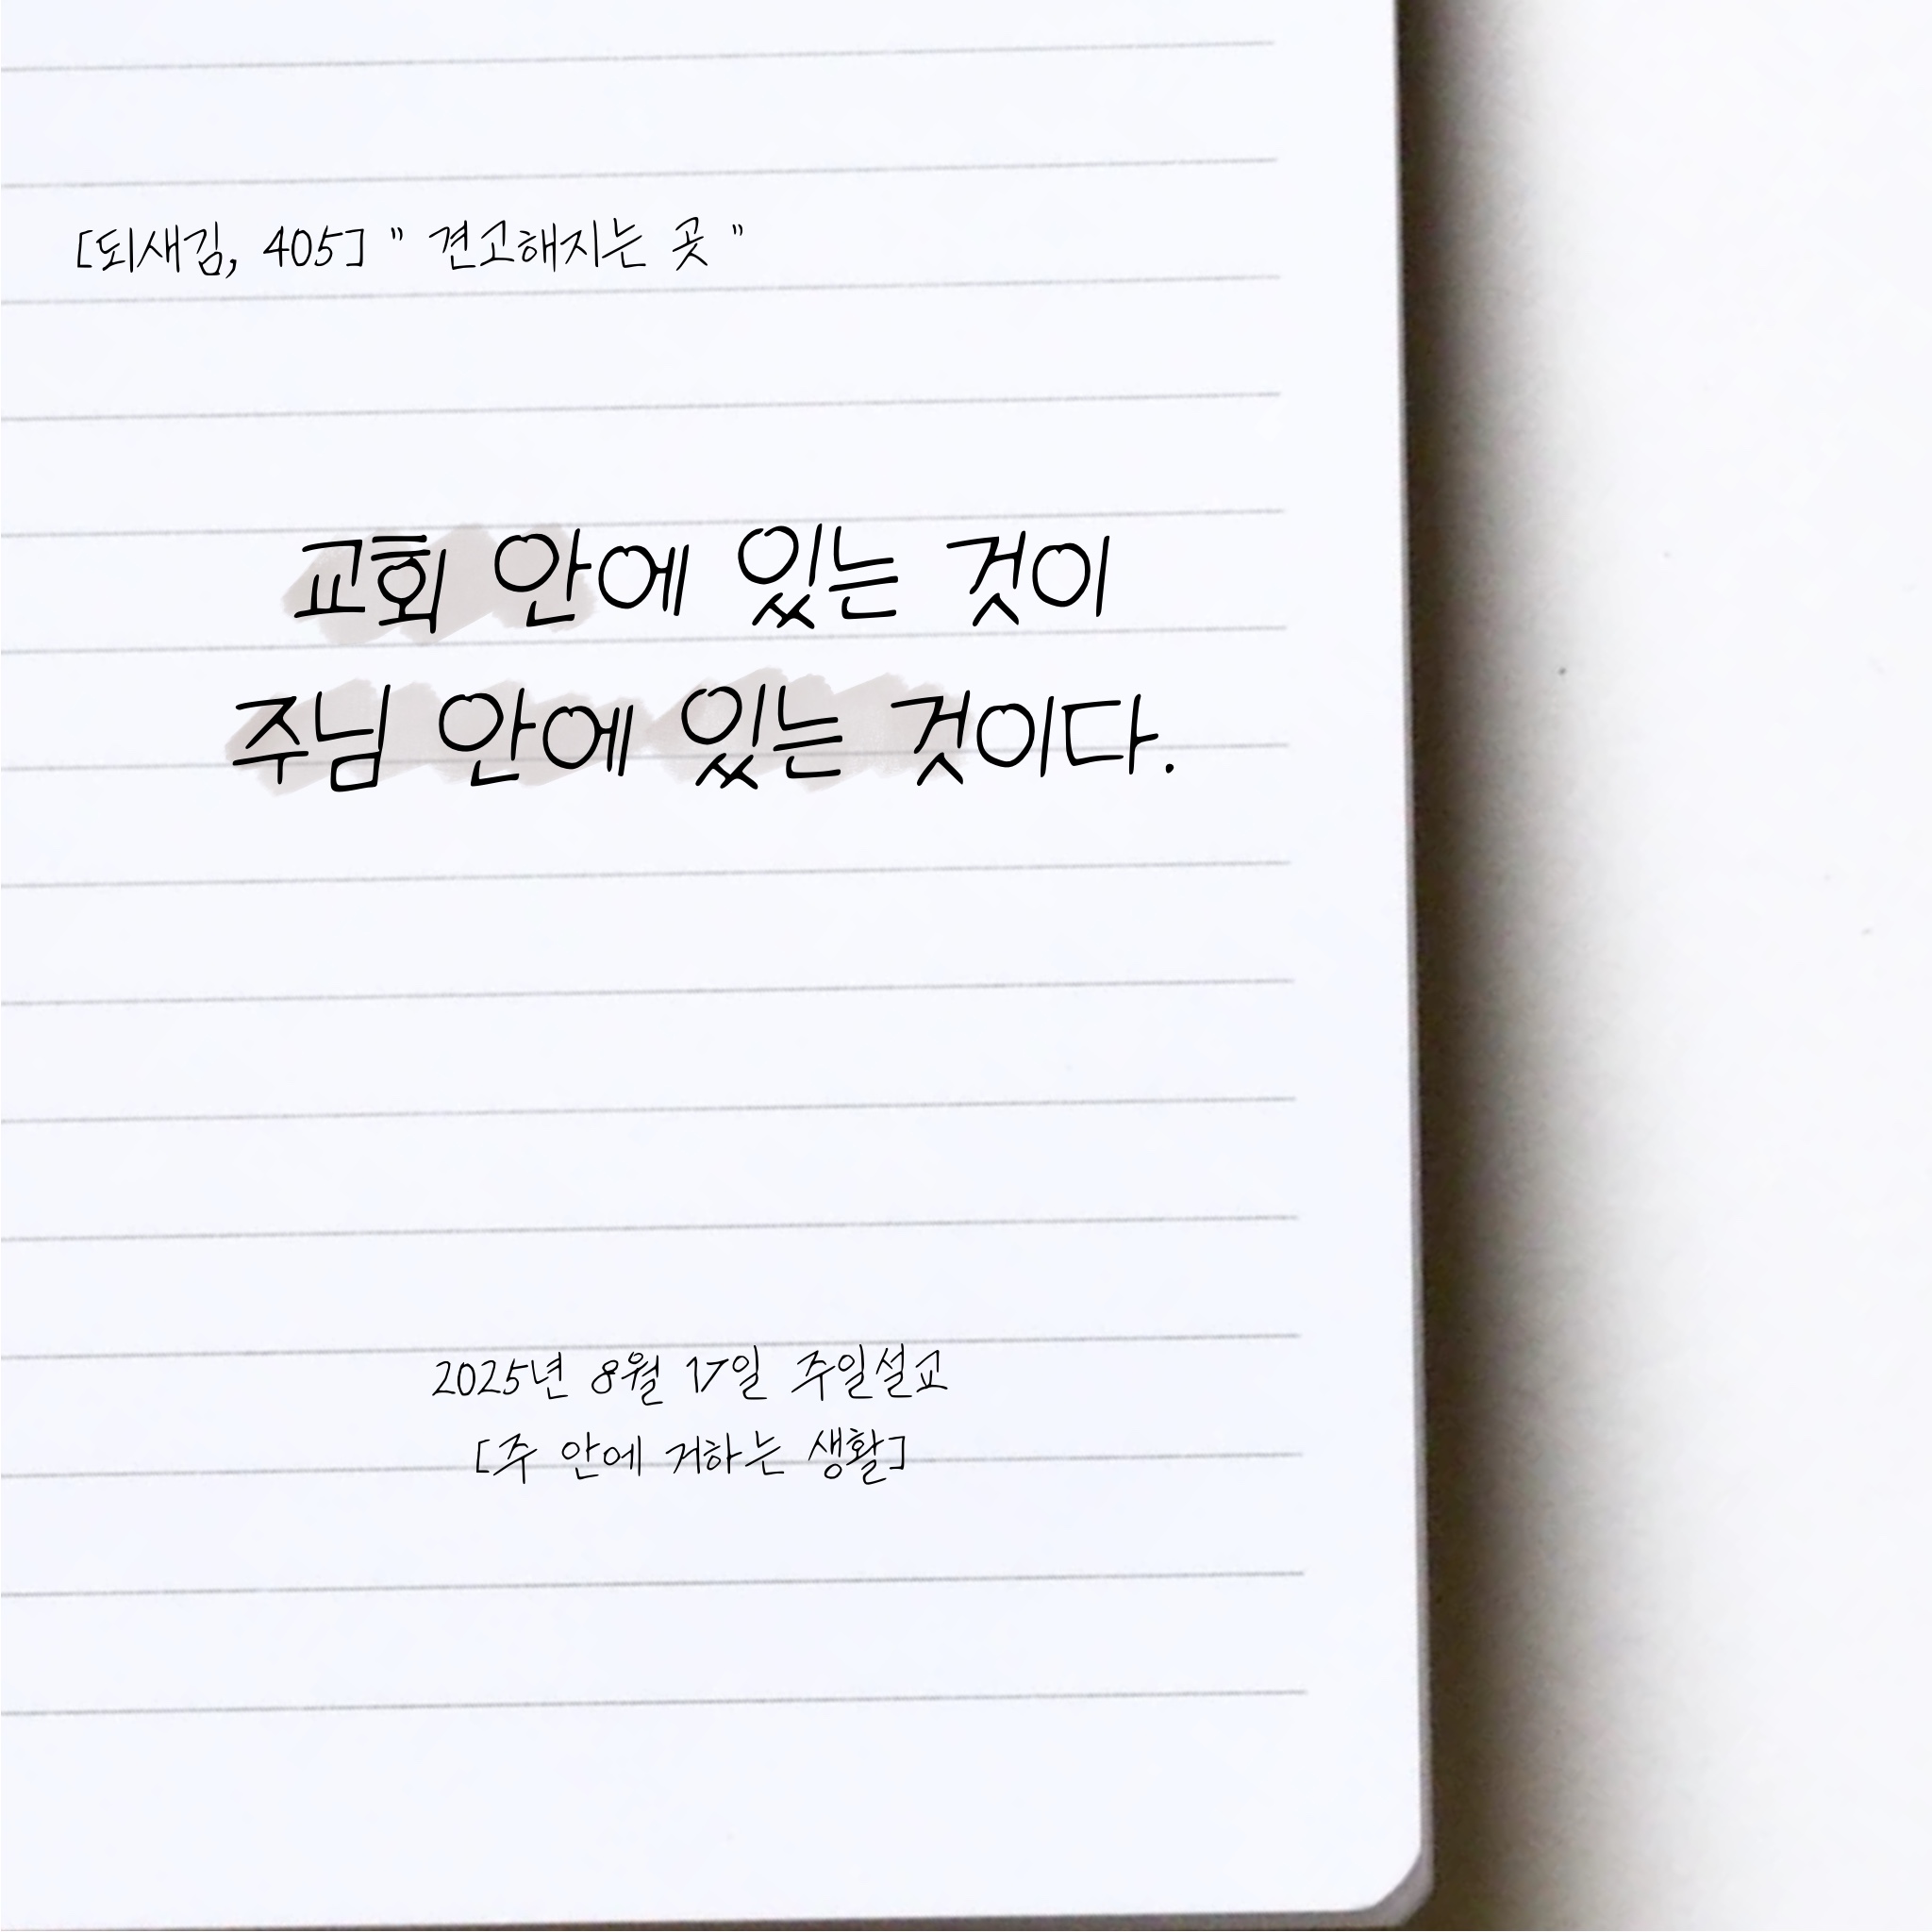 [되새김, 405] " 견고해지는 곳 "
교회 안에 있는 것이
주님 안에 있는 것이다.
2025년 8월 17일 주일설교
[주 안에 거하는 생활]